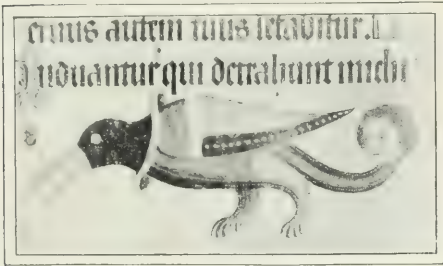 autem tuus letabitur.
nduantur qui detrahunt michi